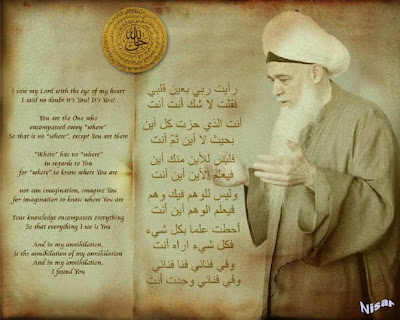 حق الله
I saw my Lord with the eye of my heart
I said no doubt it's You! It's You!
You are the One who
encompassed every "where"
So that is no "where", except You are there
"Where" has no "where"
In regards to You
for "where" to know where You are
nor can imagination, imagine You
for imagination to know where You are
Your knowledge encompasses everything
So that everything I see is You
And in my annihilation,
is the annihilation of my annihilation
And in my annihilation,
I found You
رأيت ربي بعين قلبي
فقلت لا شك أنت أنت
أنت الذي حزت كل أين
بحيث لا أين ثم أنت
فليس للأين منك أين
فيعلم الأين أين أنت
وليس للوهم فيك وهم
فيعلم الوهم أين أنت
أحطت علما بكل شيء
فكل شيء اراه أنت
وفي فنائي فنا فنائي
وفي فنائي وجدت أنت
Nisar